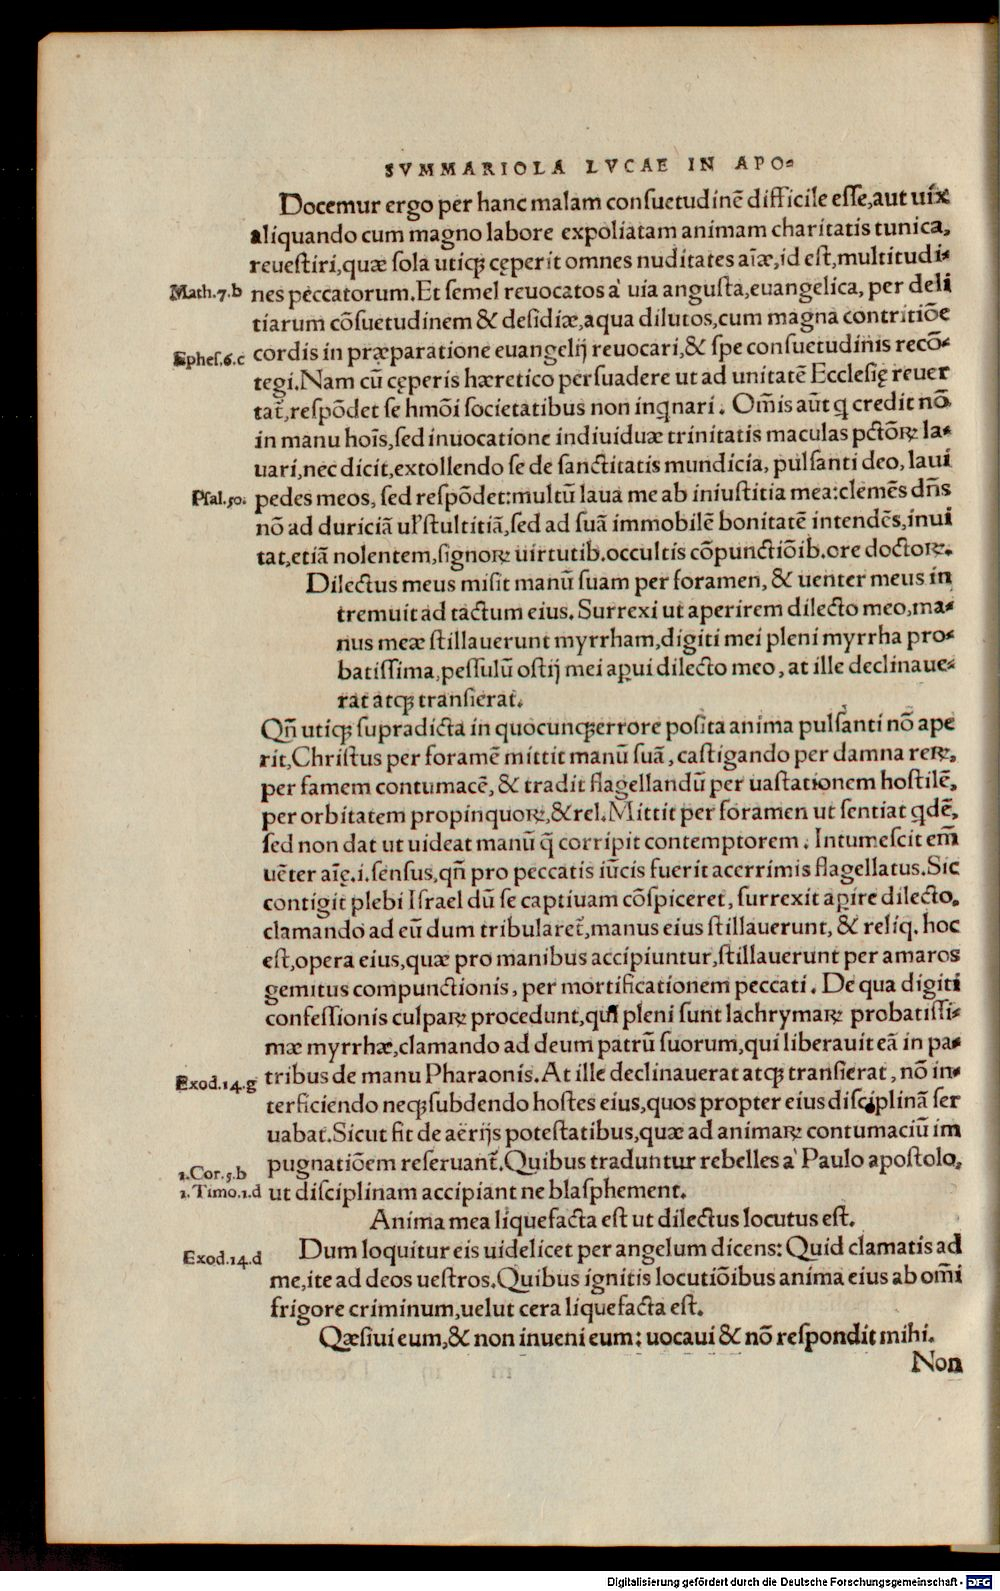 SVMMARIOLA LVCAE IN APO-
Docemur ergo per hanc malam conſuetudinẽ difficile eſſe,aut uix
aliquando cum magno labore expoliatam animam charitatis tunica,
reueſtiri,quæ ſola utiqꝫ cęperit omnes nuditates aĩæ,id eſt,multitudi-
Math.7.b nes peccatorum.Et ſemel reuocatos à uia anguſta,euangelica, per deli
tiarum cõſuetudinem & deſidiæ,aqua dilutos,cum magna contritiõe
Epheſ.6.c cordis in præparatione euangelij reuocari,& ſpe conſuetudinis recõ-
tegi.Nam cũ cęperis hæretico perſuadere ut ad unitatẽ Eccleſię reuer
tat̃,reſpõdet ſe hmõi ſocietatibus non inꝗnari. Om̃is aũt ꝗ credit nõ
in manu hoĩs,ſed inuocatione indiuiduæ trinitatis maculas pctõꝝ la-
uari,nec dicit,extollendo ſe de ſanctitatis mundicia, pulſanti deo, laui
Pſal.50. pedes meos, ſed reſpõdet:multũ laua me ab iniuſtitia mea:clemẽs dñs
nõ ad duriciã uĺ ſtultitiã,ſed ad ſuã immobilẽ bonitatẽ intendẽs,inui
tat,etiã nolentem,ſignoꝝ uirtutib.occultis cõpunctiõib.ore doctoꝝ.
Dilectus meus miſit manũ ſuam per foramen, & uenter meus in
tremuit ad tactum eius.Surrexi ut aperirem dilecto meo,ma-
nus meæ ſtillauerunt myrrham,digiti mei pleni myrrha pro-
batiſſima,peſſulũ oſtij mei aꝑui dilecto meo, at ille declinaue-
rat atqꝫ tranſierat.
Qñ utiqꝫ ſupradicta in quocunqꝫ errore poſita anima pulſanti nõ ape
rit,Chriſtus per foramẽ mittit manũ ſuã, caſtigando per damna reꝝ,
per famem contumacẽ, & tradit flagellandũ per uaſtationem hoſtilẽ,
per orbitatem propinquoꝝ,& rel.Mittit per foramen ut ſentiat ꝗdẽ,
ſed non dat ut uideat manũ q̃ corripit contemptorem. Intumeſcit em̃
uẽter aĩę.i.ſenſus,qñ pro peccatis iũcis fuerit acerrimis flagellatus.Sic
contigit plebi Iſrael dũ ſe captiuam cõſpiceret, ſurrexit aꝑire dilecto,
clamando ad eũ dum tribularet̃,manus eius ſtillauerunt, & reliq. hoc
eſt,opera eius,quæ pro manibus accipiuntur,ſtillauerunt per amaros
gemitus compunctionis, per mortificationem peccati. De qua digiti
confeſſionis culpaꝝ procedunt,qui pleni ſunt lachrymaꝝ probatiſſi-
mæ myrrhæ,clamando ad deum patrũ ſuorum,qui liberauit eã in pa-
Exod.14.g tribus de manu Pharaonis.At ille declinauerat atqꝫ tranſierat, nõ in-
terficiendo neqꝫ ſubdendo hoſtes eius,quos propter eius diſciplinã ſer
uabat.Sicut fit de aërijs poteſtatibus,quæ ad animaꝝ contumaciũ im
1.Cor.5.b pugnatiõem reſeruant̃.Quibus traduntur rebelles à Paulo apoſtolo,
1.Timo.1.d ut diſciplinam accipiant ne blaſphement.
Anima mea liquefacta eſt ut dilectus locutus eſt.
Exod.14.d Dum loquitur eis uidelicet per angelum dicens: Quid clamatis ad
me,ite ad deos ueſtros.Quibus ignitis locutiõibus anima eius ab om̃i
frigore criminum,uelut cera liquefacta eſt.
Quæſiui eum,& non inueni eum: uocaui & nõ reſpondit mihi.
Non
Digitalisierung gefördert durch die Deutsche Forschungsgemeinschaft - DFG